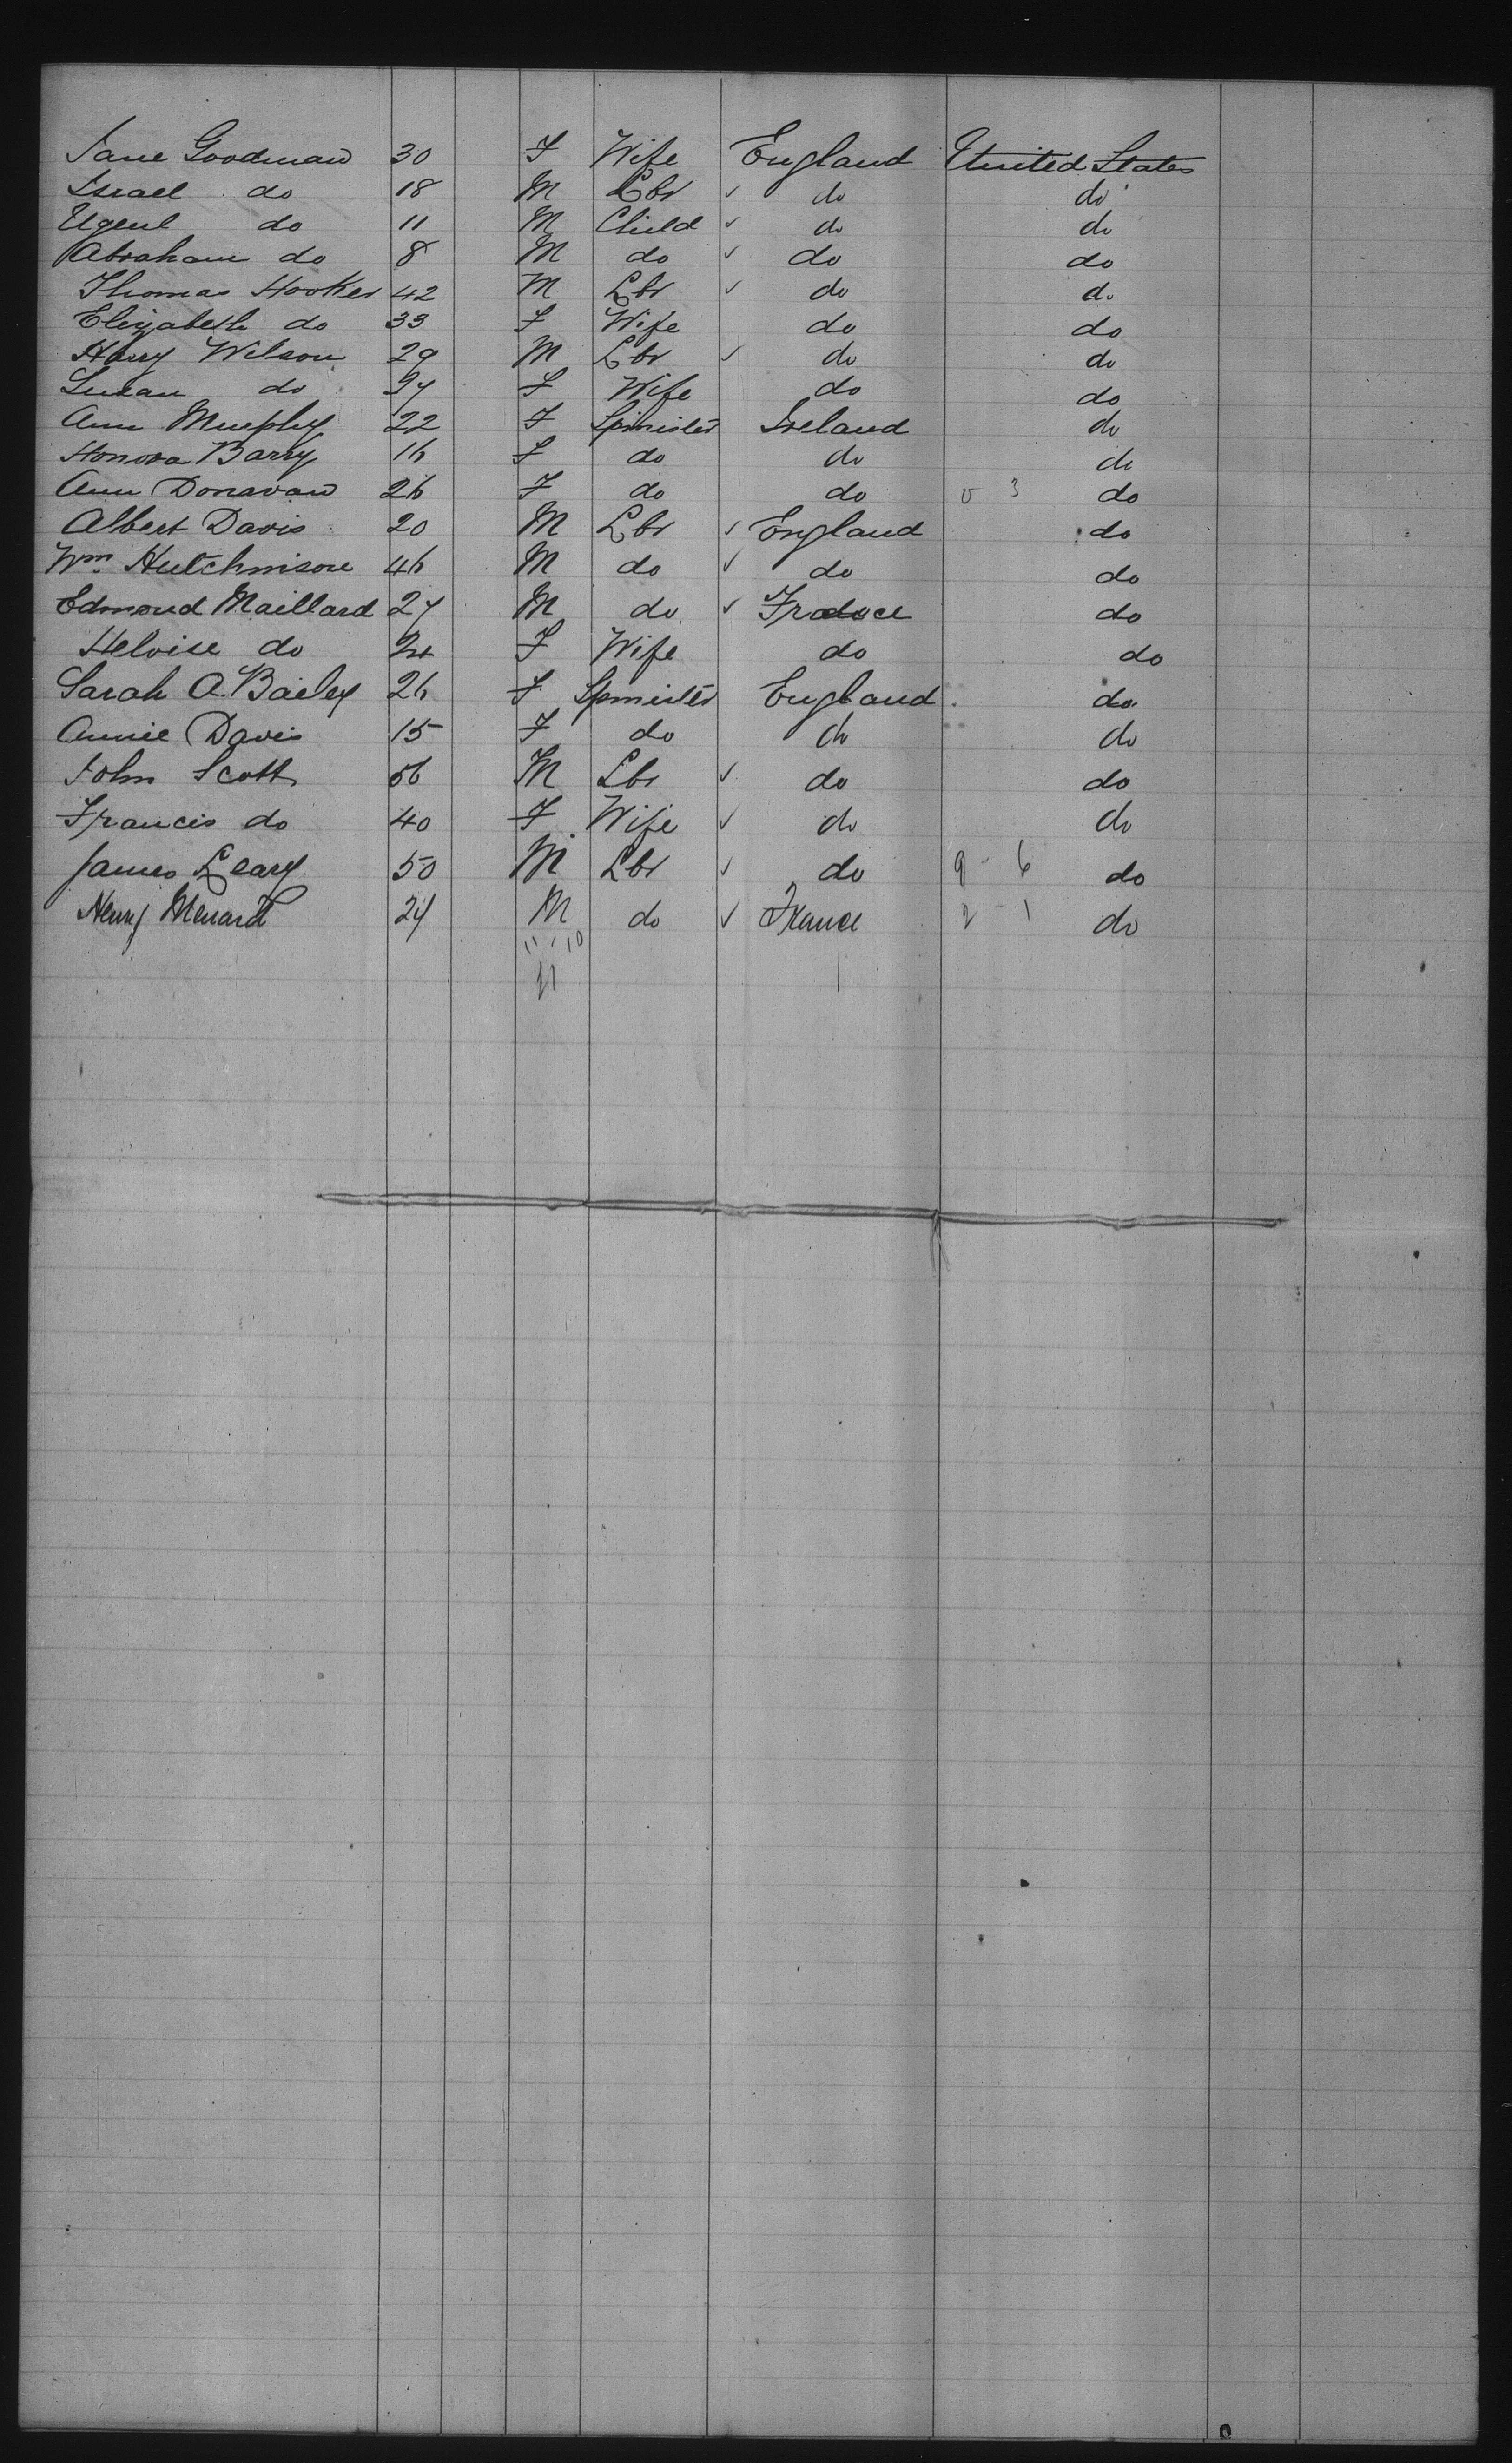 Jane Goodman 30 F Wife England United States
Israel do 18 M Lbr ✓ do do
Ugeul do 11 M Child ✓ do do
Abraham do 8 M do ✓ do do
Thomas Hooker 42 M Lbr ✓ do do
Elizabeth do 33 F Wife do do
Harry Wilson 29 M Lbr ✓ do do
Susan do 27 F Wife do do
Ann Murphy 22 F Spinister Ireland do
Honora Barry 16 F do do do
Ann Donavan 26 F do do 0 3 do
Albert Davis 20 M Lbr ✓ England do
Wm. Hutchinison 46 M do ✓ do do
Edmond Maillard 27 M do ✓ France do
Heloise do 24 F Wife do do
Sarah A. Bailey 26 F Spinister England do
Annie Davis 15 F do do do
John Scott 56 M Lbr ✓ do do
Francis do 40 F Wife ✓ do do
James Leary 50 M Lbr ✓ do 9 - 6 do
Henry Menard 24 M do ✓ France 2 - 1 do
11 - 10
21